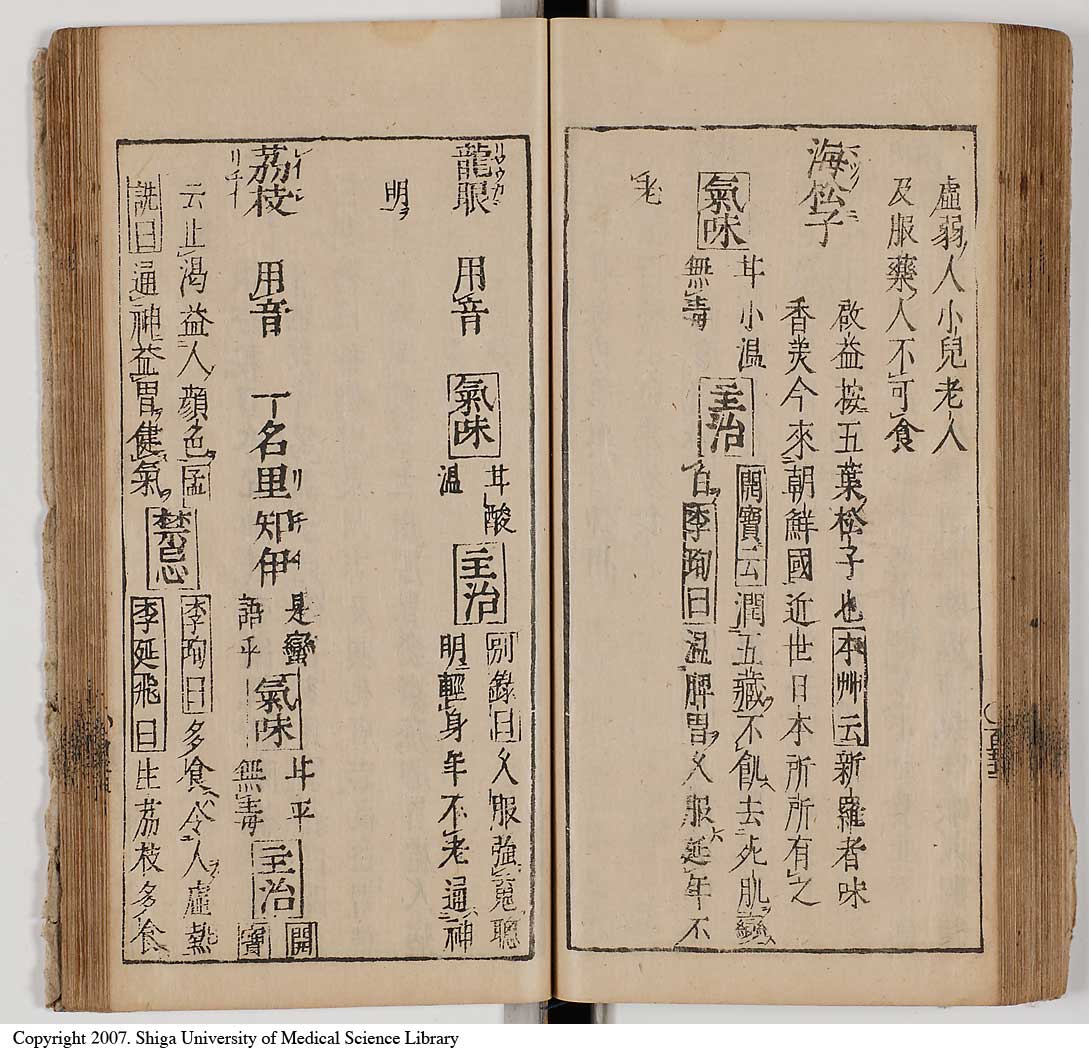 虛弱人小兒老人
及服藥人不可食
海松子
啟益按五葉松子也本艸云新羅者味
香美今來朝鮮國近世日本所所有之
氣味
甘小溫
無毒
主治
開寶云潤五藏不飢去死肌變
白李珣曰溫脾胃久服延年不
老
龍眼 用音 氣味
リウカン
甘酸
溫
主治
別錄曰久服強䰟聰
明輕身年不老通神
明
荔枝 用音 一名里知伊
レイシ
リチイ
是蠻
語乎
氣味
甘平
無毒
主治
開
寶
云止渴益人顏色孟
詵曰通神益胃健氣
禁忌
李珣曰多食令人虛熱
李延飛曰生荔枝多食
Copyright 2007. Shiga University of Medical Science Library